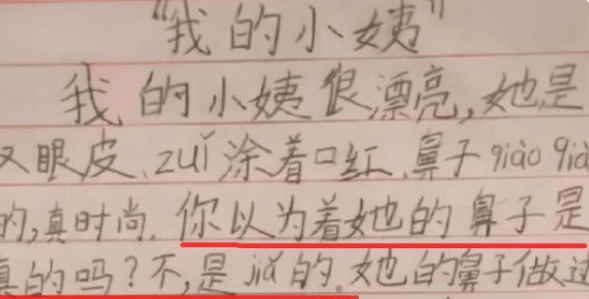 “我的小姨”
我的小姨很漂亮,她是
双眼皮、zuǐ涂着口红、鼻子qiào qiào
的,真时尚.你以为着她的鼻子是
真的吗?不,是jiǎ的。她的鼻子做过